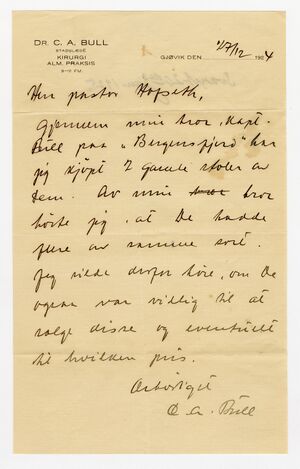 DR. C. A. BULL
STADSLÆGE
KIRURGI
ALM. PRAKSIS
9-11 FM.
GJØVIK DEN 27/12 1924
Herr pastor Hofseth,
Gjennem min bror, kapt.
Bull paa "Bergensfjord" har
jeg kjöpt 2 gamle stoler av
Dem. Av min bror
hörte jeg, at De hadde
flere av samme sort.
Jeg vilde derfor höre, om De
ogsaa var villig til at
sælge disse og eventuelt
til hvilken pris.
Ærbödigst
C. A. Bull